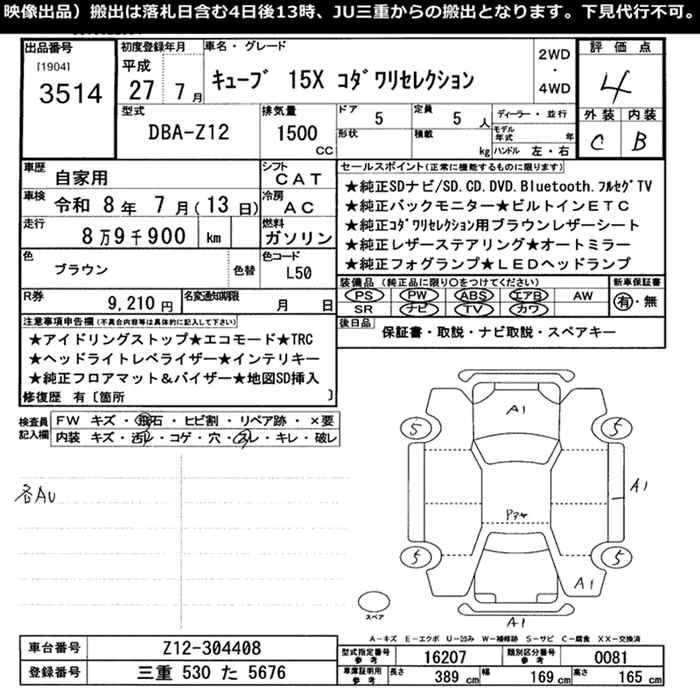 映像出品）搬出は落札日含む4日後13時、JU三重からの搬出となります。下見代行不可。
出品番号 [1904] 3514
初度登録年月 平成 27 7月
車名・グレード キューブ 15X コダワリセレクション
2WD・4WD
評価点 4
外装 C 内装 B
型式 DBA-Z12
排気量 1500 CC
ドア 5 形状
定員 5人 積載 kg
ディーラー・並行
モデル年式 年
ハンドル 左・右
車歴 自家用
シフト CAT
車検 令和 8年 7月(13日)
冷房 AC
走行 8万9千900 km
燃料 ガソリン
色 ブラウン 色替
色コード L50
R券 9,210円
名変通知期限 月 日
セールスポイント(正常に機能するものに限ります)
★純正SDナビ/SD.CD.DVD.Bluetooth.フルセグTV
★純正バックモニター★ビルトインETC
★純正コダワリセレクション用ブラウンレザーシート
★純正レザーステアリング★オートミラー
★純正フォグランプ★LEDヘッドランプ
装備品（純正品に限り○をつけてください）
PS PW ABS エアB AW
SR ナビ TV カワ
新車保証書 有・無
後日品 保証書・取説・ナビ取説・スペアキー
注意事項申告欄(不具合内容等は具体的に記入して下さい)
★アイドリングストップ★エコモード★TRC
★ヘッドライトレベライザー★インテリキー
★純正フロアマット＆バイザー★地図SD挿入
修復歴 有〔箇所 〕
検査員記入欄
FW キズ・飛石・ヒビ割・リペア跡・×要
内装 キズ・汚レ・コゲ・穴・スレ・キレ・破レ
各AU
A1
5 5
A1
Pアキ
5 5
A1
A1
スペア
A－キズ E－エクボ U－凹み W－補修跡 S－サビ C－腐食 XX－交換済
車台番号 Z12-304408
登録番号 三重 530 た 5676
型式指定番号 参考 16207
類別区分番号 参考 0081
車庫証明用 参考 長さ 389 cm 幅 169 cm 高さ 165 cm